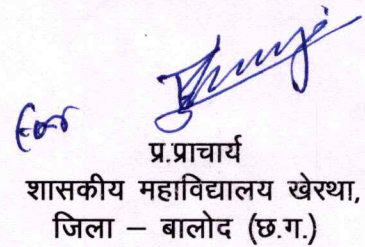 For
प्र.प्राचार्य
शासकीय महाविद्यालय खेरथा,
जिला – बालोद (छ.ग.)